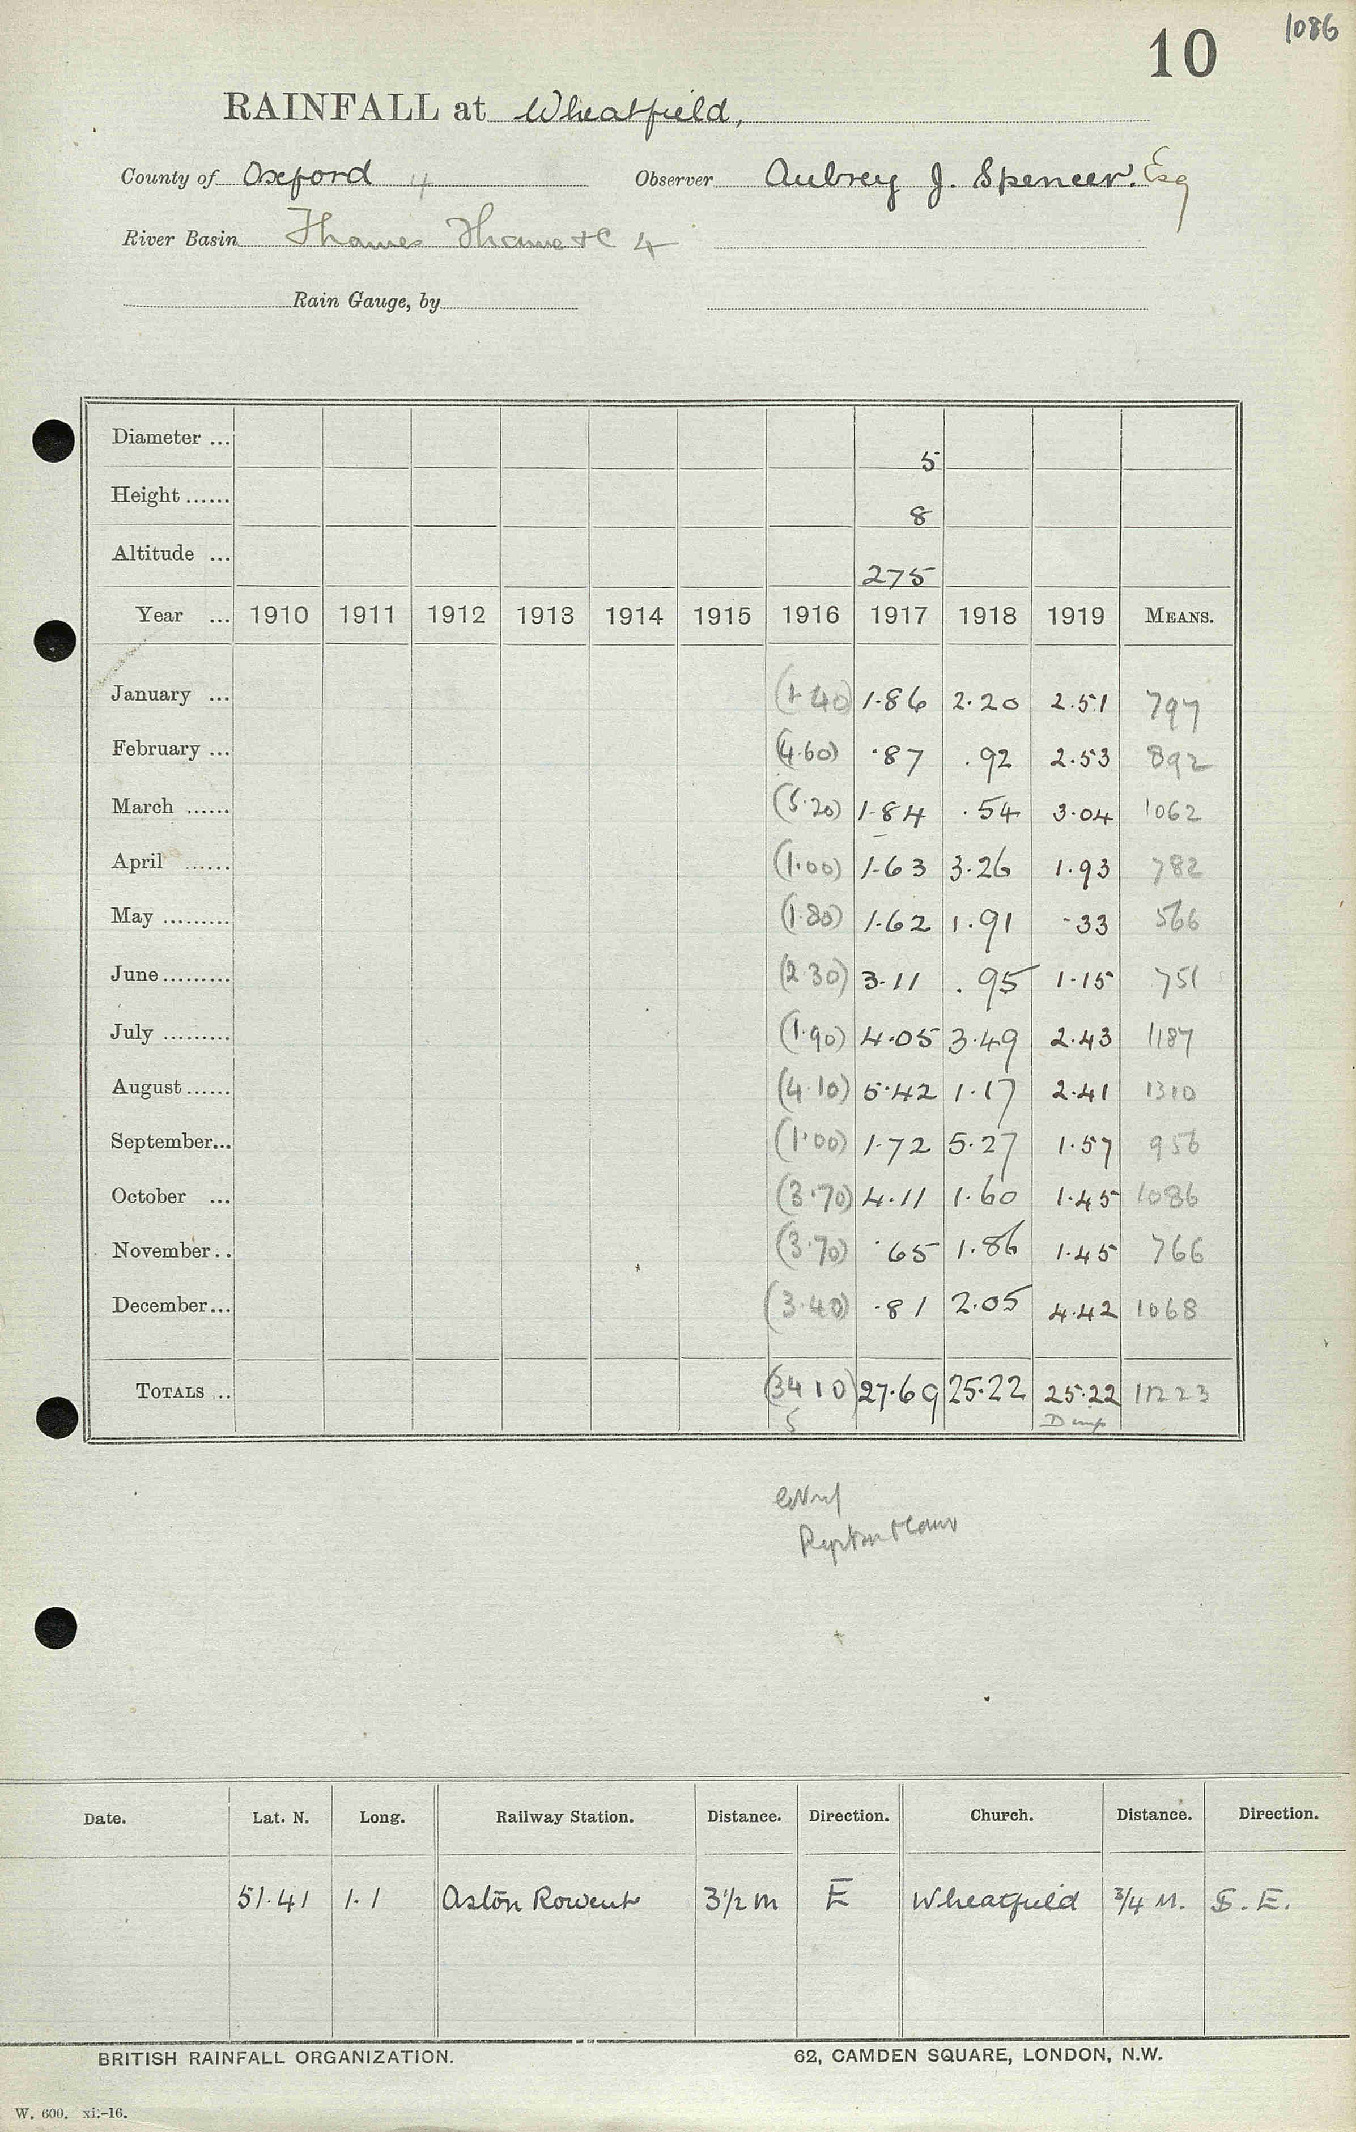 1086
10
RAINFALL at Wheatfield,
County of Oxford 4 Observer Aubrey J. Spencer. Esq
River Basin Thames Thame &c 4
Rain Gauge, by
Diameter ... 5
Height ...... 8
Altitude ... 275
Year ... 1910 1911 1912 1913 1914 1915 1916 1917 1918 1919 MEANS.
January ... (1.40) 1.86 2.20 2.51 797
February ... (4.60) .87 .92 2.53 892
March ...... (5.20) 1.84 .54 3.04 1062
April ...... (1.00) 1.63 3.26 1.93 782
May ......... (1.80) 1.62 1.91 .33 566
June ......... (2.30) 3.11 .95 1.15 751
July ......... (1.90) 4.05 3.49 2.43 1187
August ...... (4.10) 5.42 1.17 2.41 1310
September... (1.00) 1.72 5.27 1.57 956
October ... (3.70) 4.11 1.60 1.45 1086
November .. (3.70) .65 1.86 1.45 766
December... (3.40) .81 2.05 4.42 1068
TOTALS .. (34 10) 27.69 25.22 25.22 11223
5
Date. Lat. N. Long. Railway Station. Distance. Direction. Church. Distance. Direction.
51.41 1.1 Aston Rowent 3 1/2 m E Wheatfield 3/4 M. S.E.
BRITISH RAINFALL ORGANIZATION. 62, CAMDEN SQUARE, LONDON, N.W.
W. 600. xi.-16.